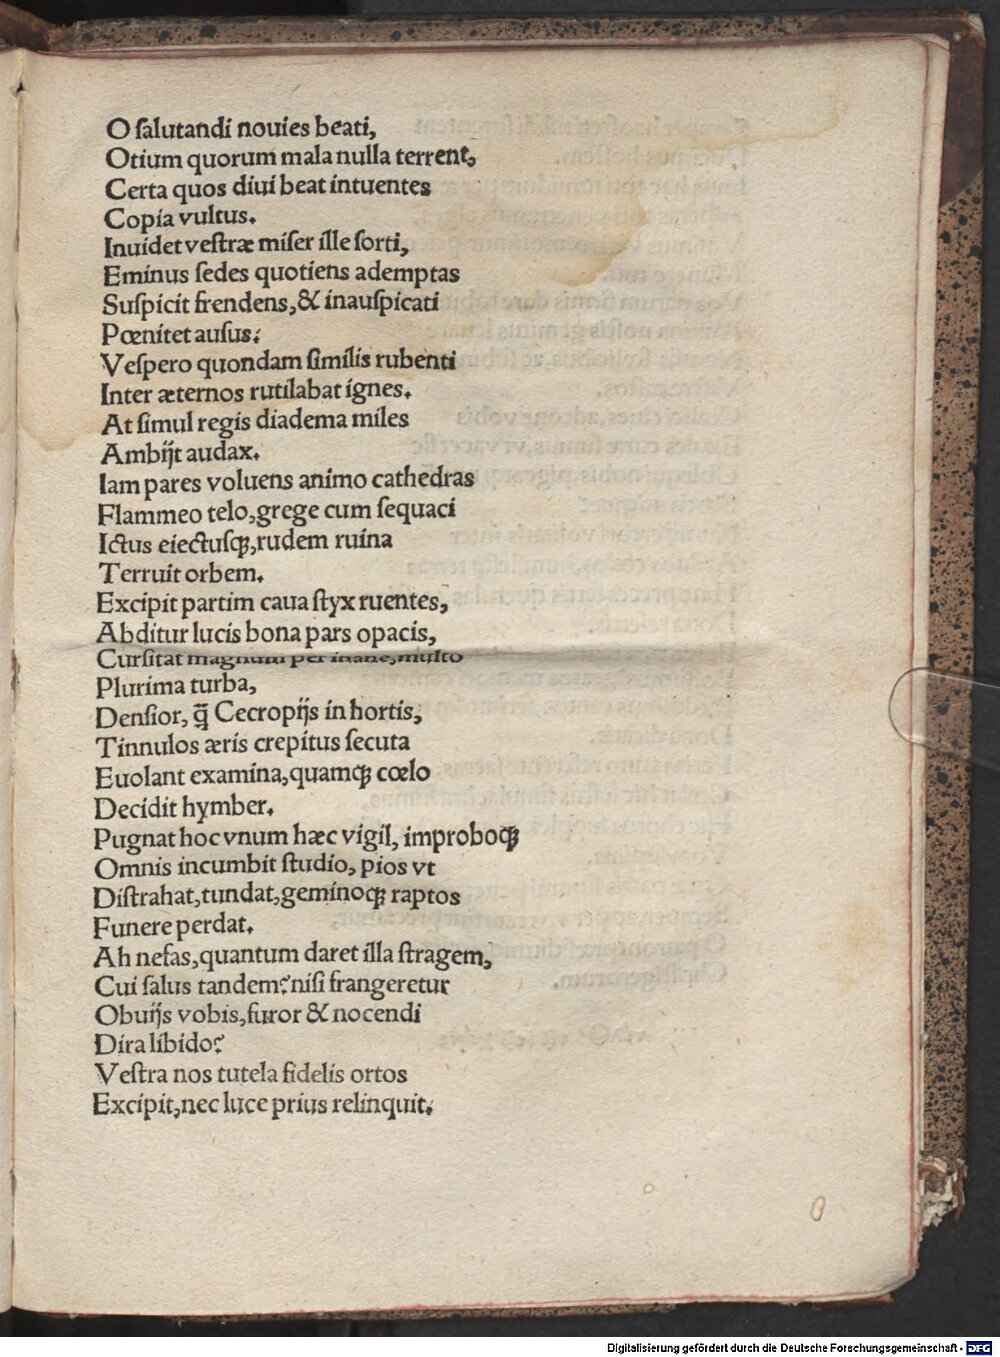 O ſalutandi nouies beati,
Otium quorum mala nulla terrent,
Certa quos diui beat intuentes
Copia vultus.
Inuidet veſtræ miſer ille ſorti,
Eminus ſedes quotiens ademptas
Suſpicit frendens, & inauſpicati
Pœnitet auſus.
Veſpero quondam ſimilis rubenti
Inter æternos rutilabat ignes.
At ſimul regis diadema miles
Ambijt audax.
Iam pares voluens animo cathedras
Flammeo telo, grege cum ſequaci
Ictus eiectuſqꝫ, rudem ruina
Terruit orbem.
Excipit partim caua ſtyx ruentes,
Abditur lucis bona pars opacis,
Curſitat magnum per inane, multo
Plurima turba,
Denſior, q̄ Cecropijs in hortis,
Tinnulos æris crepitus ſecuta
Euolant examina, quamqꝫ cœlo
Decidit hymber.
Pugnat hoc vnum hæc vigil, improboqꝫ
Omnis incumbit ſtudio, pios vt
Diſtrahat, tundat, geminoqꝫ raptos
Funere perdat.
Ah nefas, quantum daret illa ſtragem,
Cui ſalus tandem? niſi frangeretur
Obuijs vobis, furor & nocendi
Dira libido?
Veſtra nos tutela fidelis ortos
Excipit, nec luce prius relinquit.
Digitalisierung gefördert durch die Deutsche Forschungsgemeinschaft - DFG